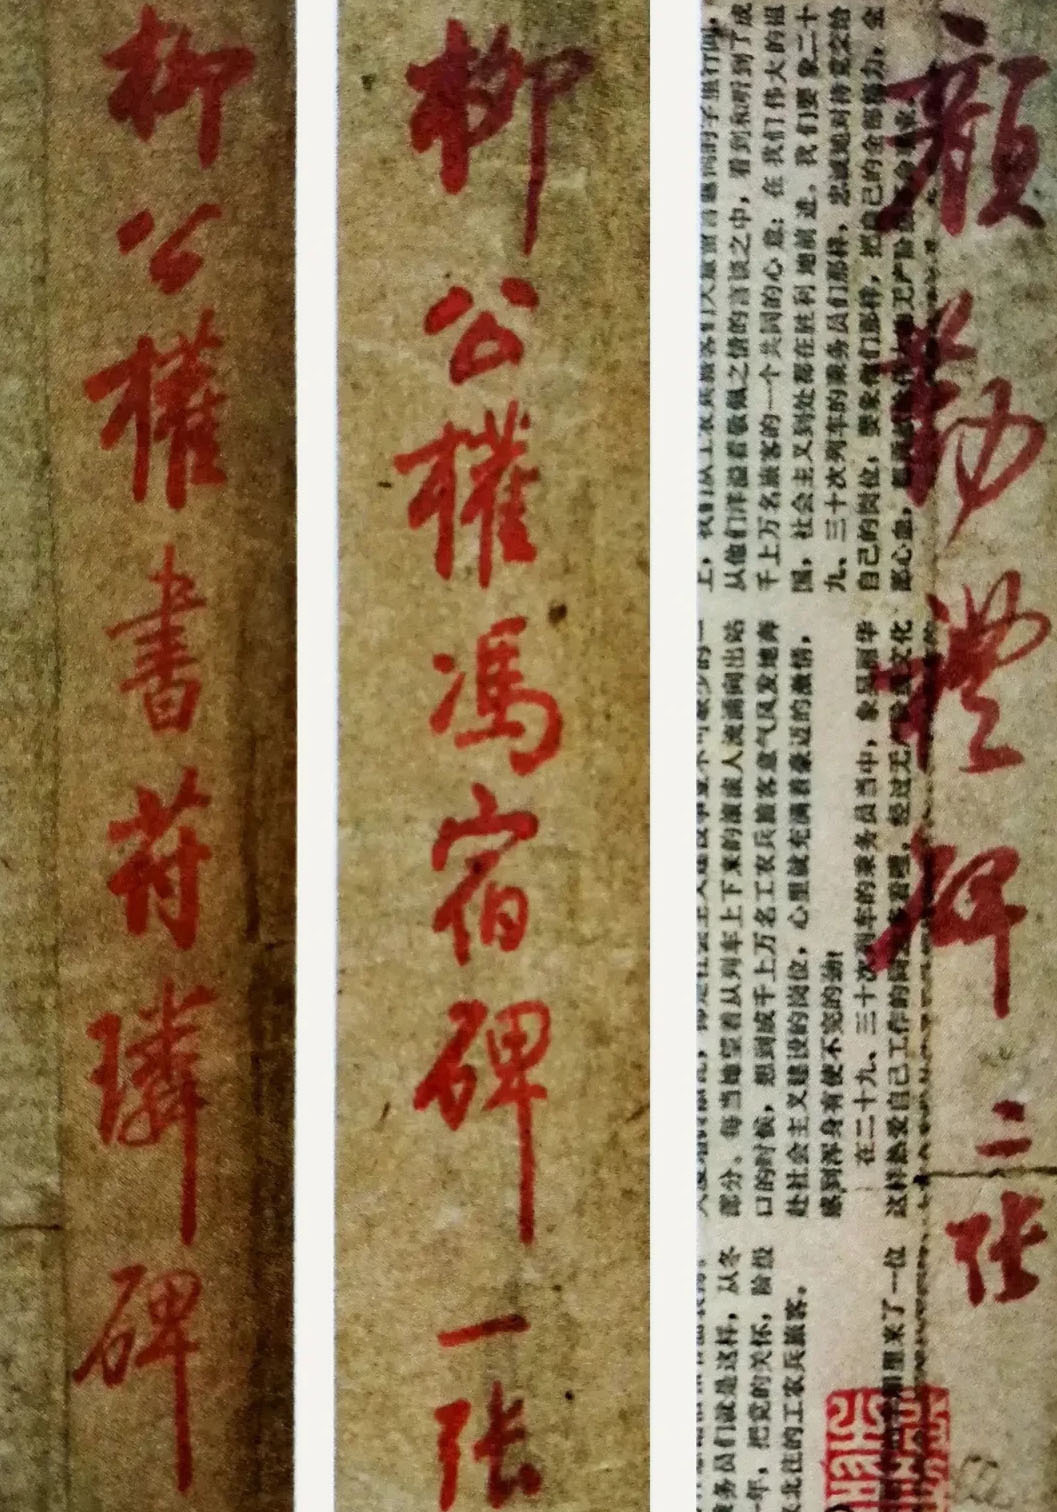 柳公權書苻璘碑
柳公權馮宿碑 一张
顏勤禮碑 二张
从他们洋溢着敬佩之情的言谈之中，看到和听到了成
千上万名旅客的一个共同的心意：在我们伟大的祖
国，社会主义到处都在胜利地前进。我们要象二十
九、三十次列车的乘务员们那样，忠诚地对待党交给
自己的岗位，要象他们那样，把自己的全部精力，全
部心血，
部分。每当她望着从列车上下来的滚滚人流涌向出站
口的时候，想到成千上万名工农兵旅客意气风发地奔
赴社会主义建设的岗位，心里就充满着豪迈的激情，
感到浑身有使不完的劲！
在二十九、三十次列车的乘务员当中，象吴丽华
这样热爱自己工作的同志多着哩。经过无产阶级文化
务员们就是这样，从冬
年，把党的关怀，阶级
北往的工农兵旅客。
里来了一位